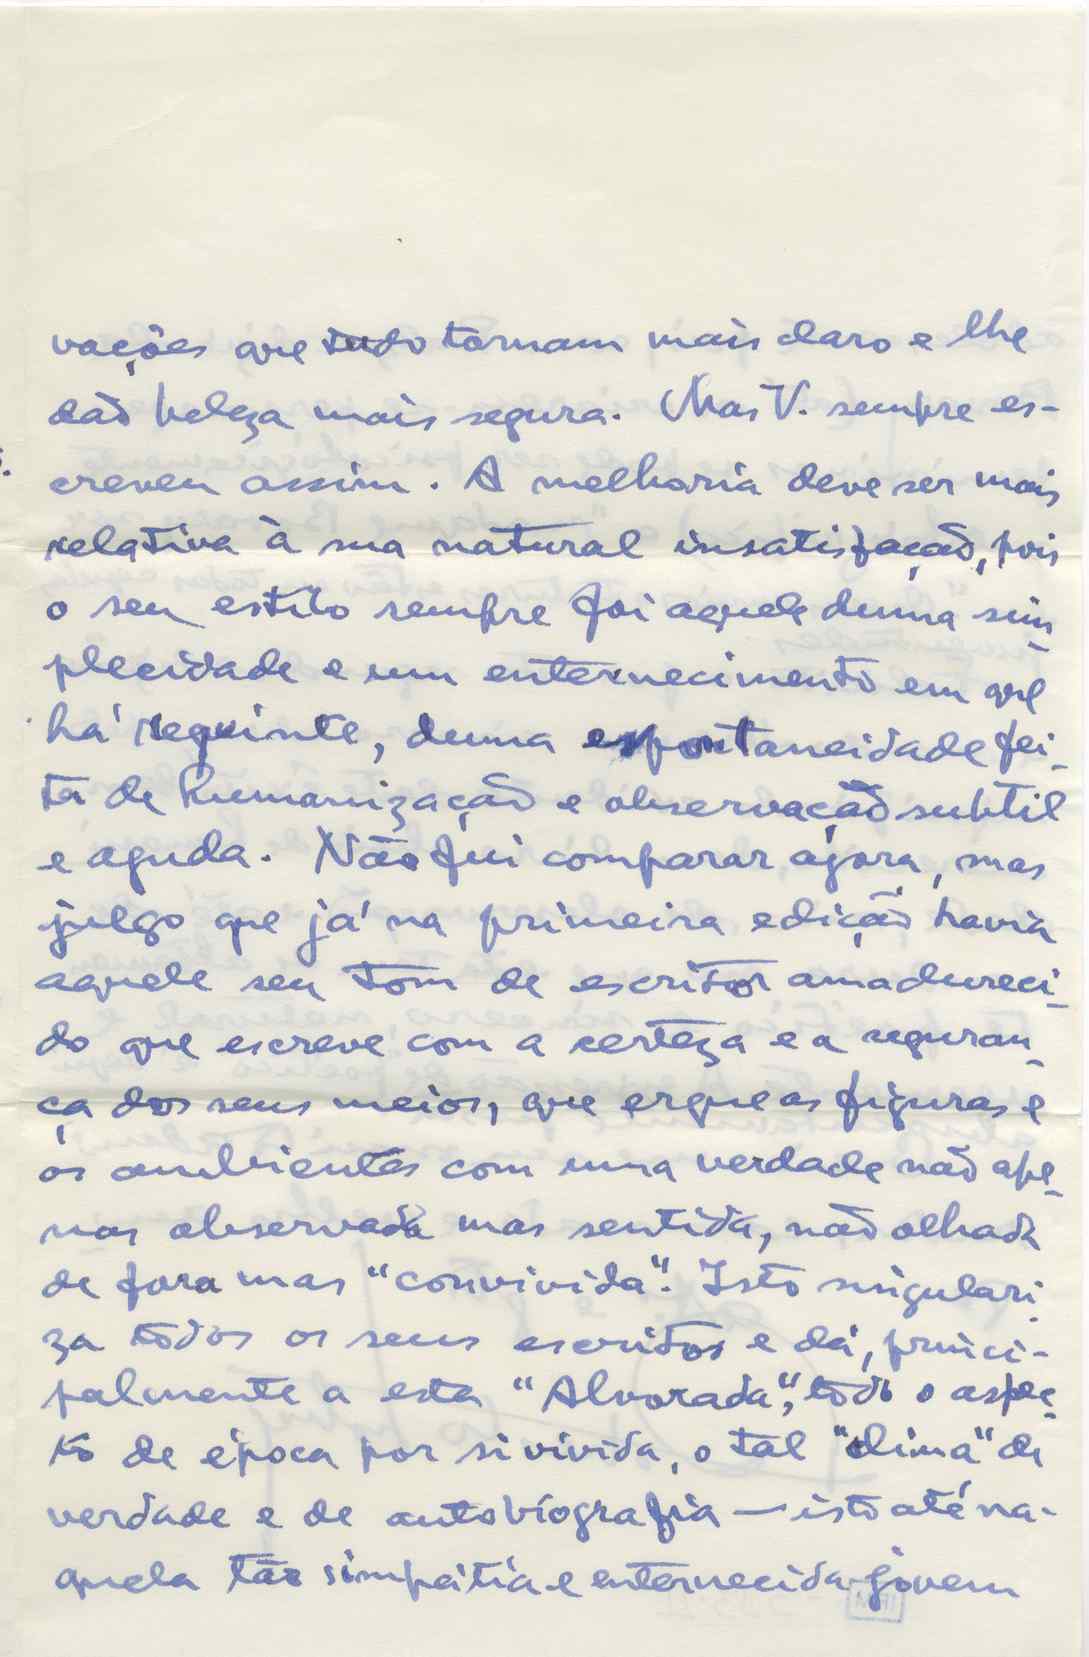 vações que tudo tornam mais claro e lhe
dão beleza mais segura. Mas V. sempre es-
creveu assim. A melhoria deve ser mais
relativa à sua natural insatisfação, pois
o seu estilo sempre foi aquele duma sim-
plecidade e um enternecimento em que
há requinte, duma espontaneidade fei-
ta de humanização e observação subtil
e aguda. Não fui comparar, agora, mas
julgo que já na primeira edição havia
aquele seu tom de escritor amadureci-
do que escreve com a certeza e a seguran-
ça dos seus meios, que ergue as figuras e
os ambientes com uma verdade não ape-
nas observada mas sentida, não olhada
de fora mas "convivida". Isto singulari-
za todos os seus escritos e dá, princi-
palmente a esta "Alvorada", todo o aspe-
to de época por si vivida, o tal "clima" de
verdade e de autobiografia — isto até na-
quela tão simpática e enternecida jovem